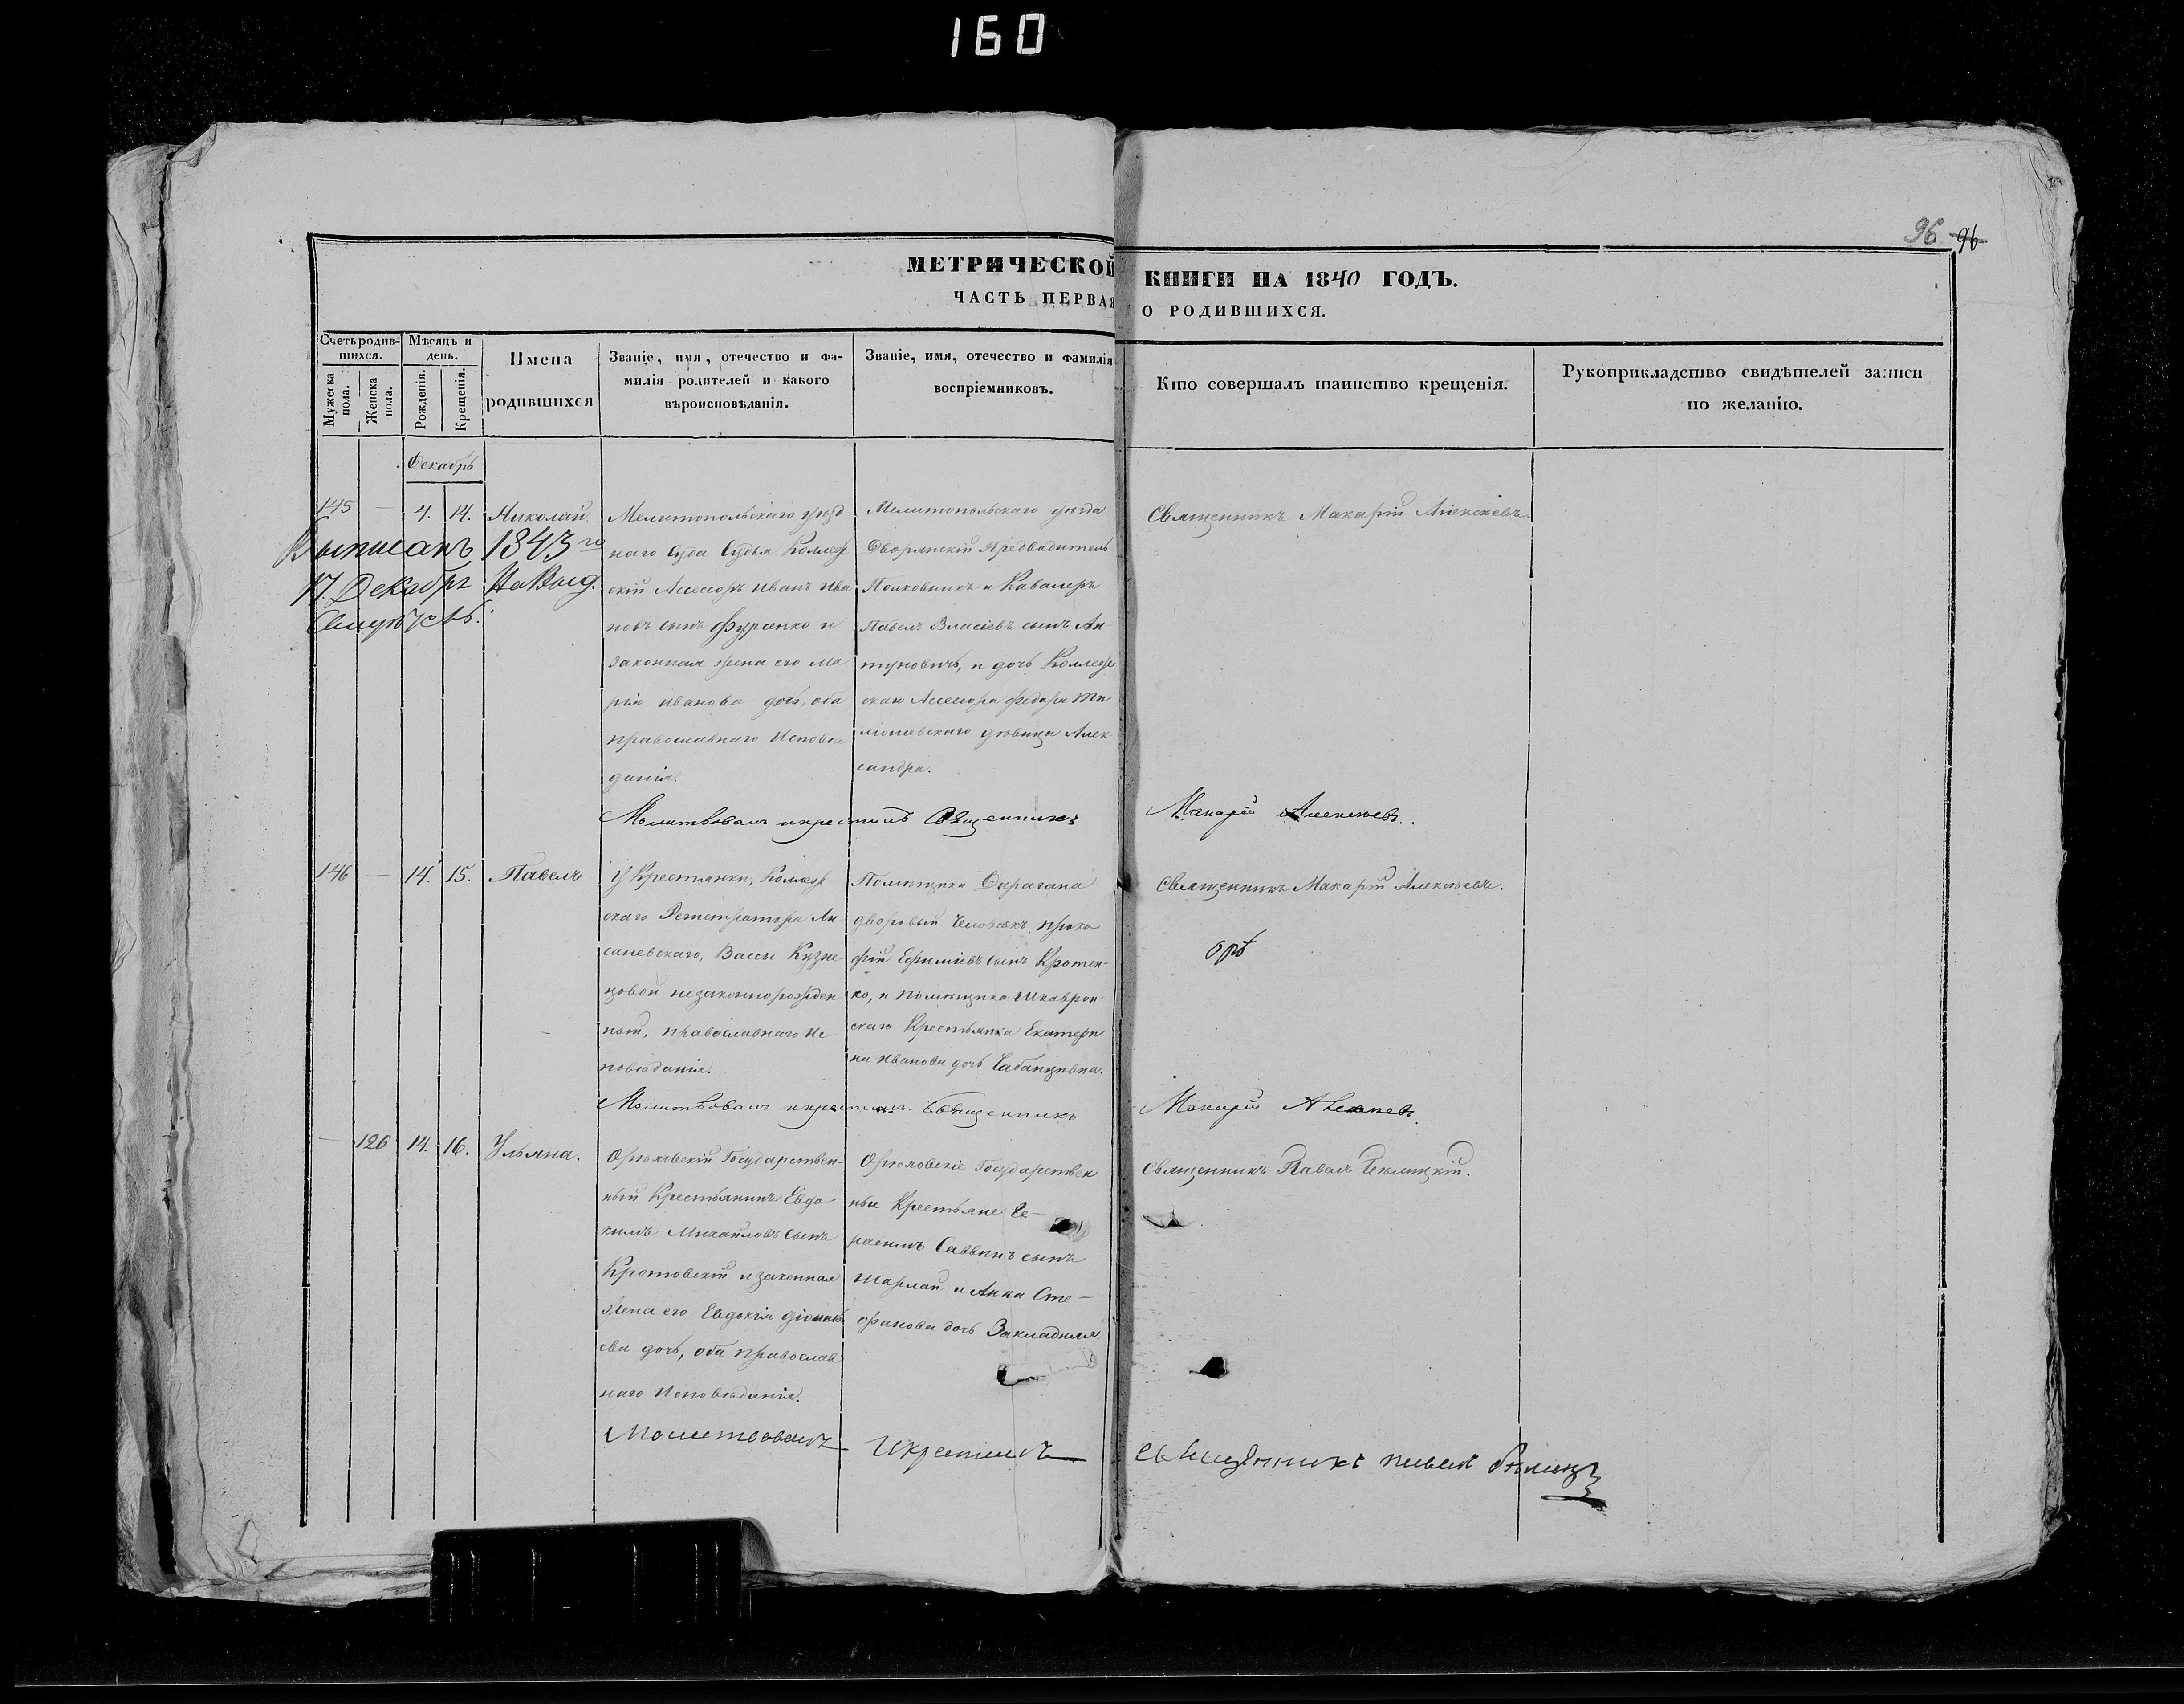 160
96 96
МЕТРИЧЕСКОЙ КНИГИ НА 1840 ГОДЪ.
ЧАСТЬ ПЕРВАЯ О РОДИВШИХСЯ.
Счетъ родив-
шихся.
Мужеска
пола.
Женска
пола.
Мѣсяцъ и
день.
Рожденія.
Крещенія.
Имена
родившихся
Званіе, имя, отечество и фа-
милія родителей и какого
вѣроисповѣданія.
Званіе, имя, отечество и фамилія
воспріемниковъ.
Кто совершалъ таинство крещенія.
Рукоприкладство свидѣтелей записи
по желанію.
Декабрь
145 — 4. 14. Николай.
Выписанъ 1843го
17. Декабря
Мелитопольскаго уѣзд
наго Суда Судья Коллеж
скій Ассесоръ Иванъ Ива
новъ сынъ и
законная жена его Ма
рія Иванова дочь, оба
православнаго Исповѣ
данія.
Мелитопольскаго уѣзда
Дворянскій Предводитель
Полковникъ и Кавалеръ
Павелъ Власіевъ сынъ Ан-
туновичъ, и дочь Коллеж
скаго Ассесора Федора
дѣвица Алек-
сандра.
Священникъ Макарій Алексѣевъ.
Молитвовалъ и крестилъ Священникъ Макарій Алексѣевъ.
146 — 14. 15. Павелъ
У Крестьянки, Коллеж-
скаго Регистратора Ли-
саневскаго, Вассы Кузне-
цовой незаконнорожден
ный, православнаго Ис-
повѣданія.
Помѣщика Дарагана
дворовый Человѣкъ Проко
фій Ефиміевъ сынъ Кротен-
ко, и помѣщика Шкаврон
скаго Крестьянка Екатери
на Иванова дочь
Священникъ Макарій Алексѣевъ.
Молитвовалъ и крестилъ Священникъ Макарій Алексѣевъ.
— 126 14. 16. Ульяна.
Орѣховскій Государствен-
ный Крестьянинъ Евдо-
кимъ Михайловъ Сынъ
Кротовскій и законная
жена его Евдокія
ева дочь, оба православ
наго Исповѣданія.
Орѣховскіе Государствен
ные Крестьяне Ге-
расимъ Саввинъ сынъ
Шарлай и Анна Сте-
фанова дочь Закладная.
Священникъ Павелъ Бѣлицкій.
Молитвовалъ и крестилъ священникъ Павелъ